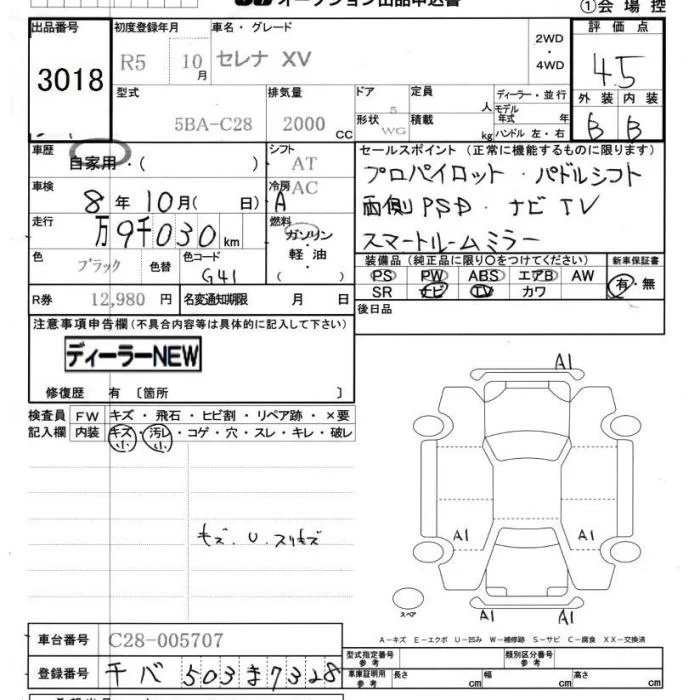 オークション出品申込書
①会場控
出品番号 初度登録年月 車名・グレード 評価点
3018
R5 10月 セレナ XV
2WD
・
4WD
4.5
型式 排気量 ドア 定員 ディーラー・並行 外装 内装
5BA-C28 2000 CC 5 人 モデル年式 年 B B
形状 WG 積載 kg ハンドル 左・右
車歴 自家用・( ) シフト AT
セールスポイント (正常に機能するものに限ります)
プロパイロット・パドルシフト
車検 8年10月( 日) 冷房 AC A
両側PSD・ナビTV
走行 万9千030km 燃料 ガソリン 軽油 ( )
スマートルームミラー
色 ブラック 色替 色コード G41
装備品 (純正品に限り〇をつけてください) 新車保証書
PS PW ABS エアB AW 有・無
SR ナビ TV カワ
R券 12,980 円 名変通知期限 月 日
後日品
注意事項申告欄(不具合内容等は具体的に記入して下さい)
ディーラーNEW
修復歴 有 〔箇所 〕
検査員記入欄 FW キズ・飛石・ヒビ割・リペア跡・×要
内装 キズ・汚レ・コゲ・穴・スレ・キレ・破レ
小 小
キズ.U.スリキズ
A1
A1 A1
A1 A1
スペア
A-キズ E-エクボ U-凹み W-補修跡 S-サビ C-腐食 XX-交換済
車台番号 C28-005707
型式指定番号 参考 類別区分番号 参考
登録番号 千バ 503ま7328
車庫証明用 参考 長さ cm 幅 cm 高さ cm